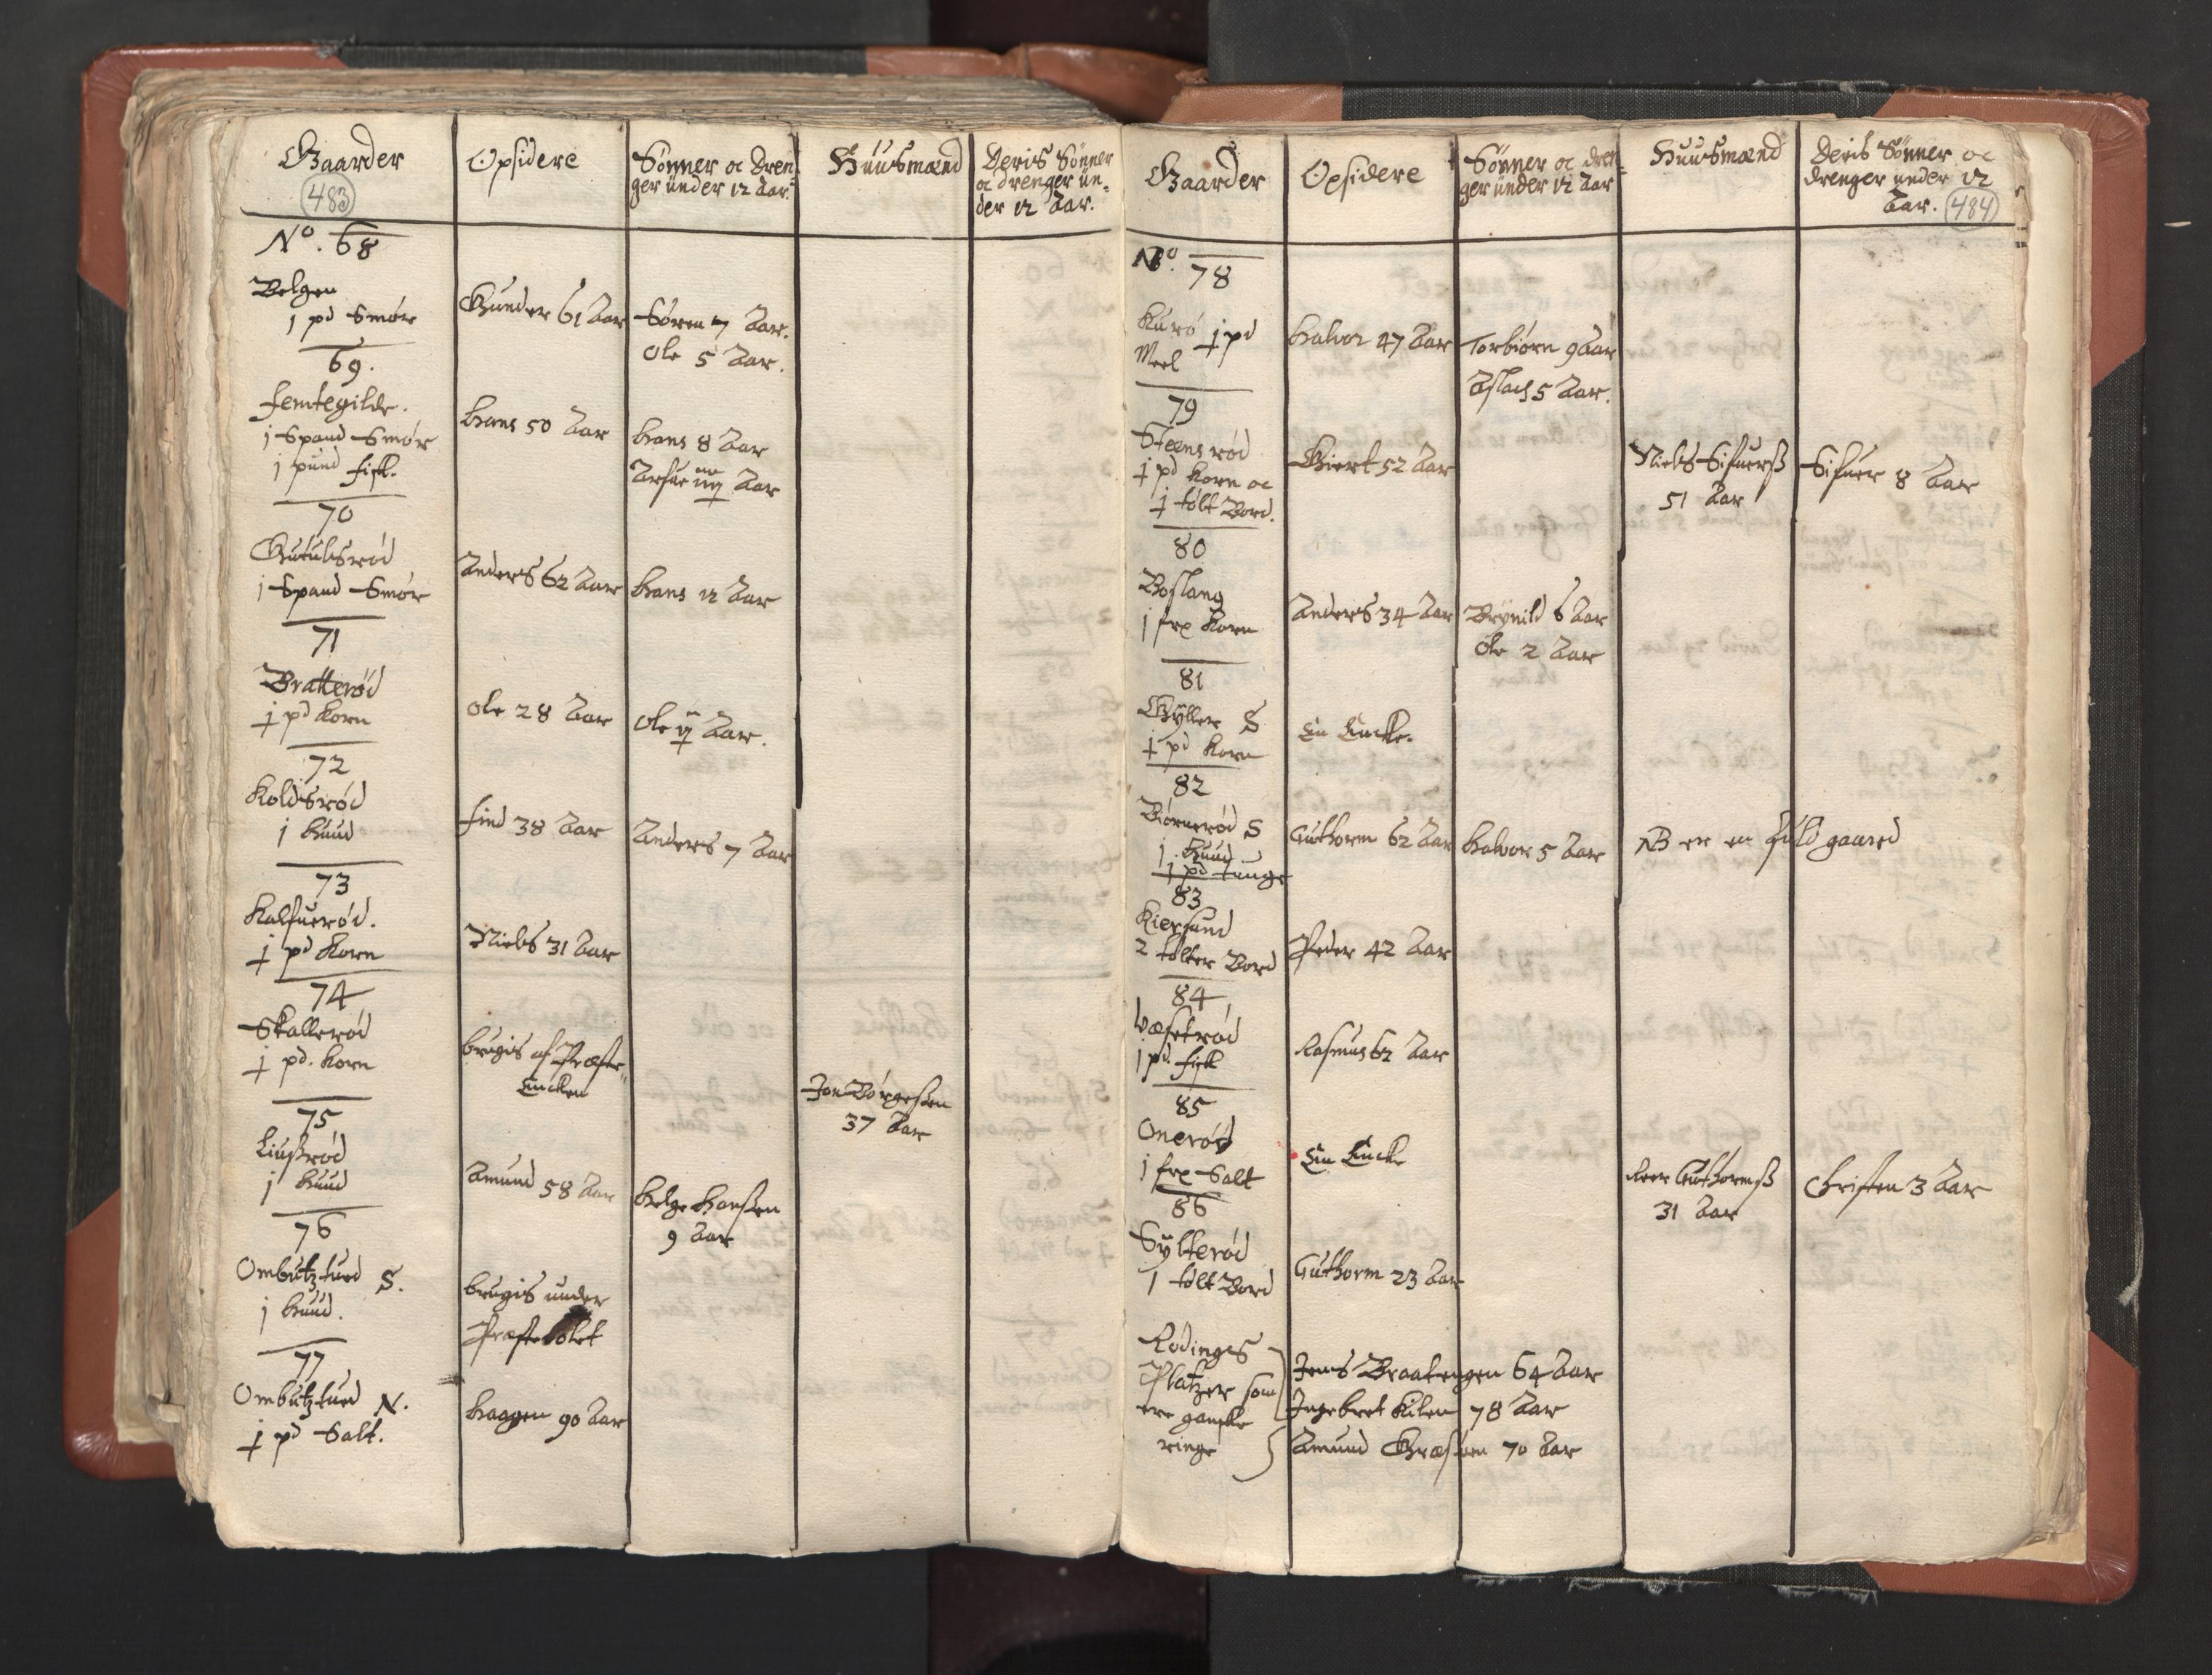 Gaarder
483
Opsidere
Sønner oc Dren-
ger under 12 Aar.
Huusmænd
Deris Sønner
oc drenger un-
der 12 Aar.
No. 68
Bolgen
j pd Smør
Gunder 61 Aar
Søren 7 Aar.
Ole 5 Aar.
69.
femtegilde.
j Spand Smør
j pund fisk.
Hans 50 Aar
Hans 8 Aar
Arfue iiij Aar
70
j Spand Smør
Anders 62 Aar
Hans 12 Aar
71
Bratterød
j pd Korn
Ole 28 Aar
Ole ij Aar.
72
Koldsrød
j Huud
find 38 Aar
Anders 7 Aar
73
Kalfuerød.
j pd Korn
Niels 31 Aar
74
Skallerød
j pd. Korn
brugis af Præste
Encken
Jon Børgesen
37 Aar
75
Liusrød
j Huud
Amund 58 Aar
Helge Hansen
9 Aar
76
Ombutztued S.
j Huud.
brugis under
Præstebolet
77
Ombutztued N.
j pd Salt.
Haagen 90 Aar
Gaarder
Opsidere
Sønner oc dren-
ger under 12 Aar
Huusmænd
Deris Sønner oc
drenger under 12
Aar. 484
No. 78
Kurø j pd
Meel
Halvor 47 Aar
Torbiørn 9 Aar
Aslach 5 Aar.
79
Steensrød
j pd Korn oc
j tolt Bord.
Giert 52 Aar
Niels Sifuerß
51 Aar
Sifuer 8 Aar
80
Boslang
j frp Korn
Anders 34 Aar
Brynild 6 Aar
Ole 2 Aar
81
Gyller S
j pd Korn
En Encke.
82
Biørnerød S
j Huud
j pd tunge
Guthorm 62 Aar
Halvor 5 Aar
NB er en fuld gaard
83
Kiersund
2 tolter Bord
Peder 42 Aar
84
Wæsetrød
j pd. fisk
Rasmus 62 Aar
85
Onerød
j frp Salt
En Encke
Roer Guthormß
31 Aar
Christen 3 Aar
86
Sylterød
1 tolt Bord
Guthorm 23 Aar
Rødinges
Platzer som
ere ganske
ringe
Jens Braatengen 64 Aar
Ingebret Kilen 78 Aar
Amund 70 Aar